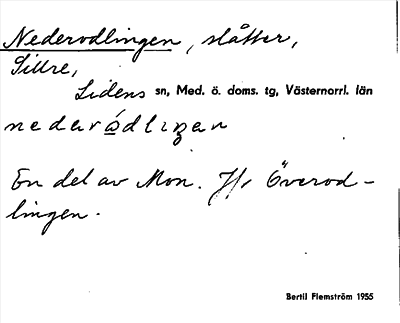 Nederodlingen, slåtter,
Sillre,
Lidens sn, Med. ö. doms. tg, Västernorrl. län
nederòdliŋen
En del av Mon. Jfr Överod-
lingen.
Bertil Flemström 1955